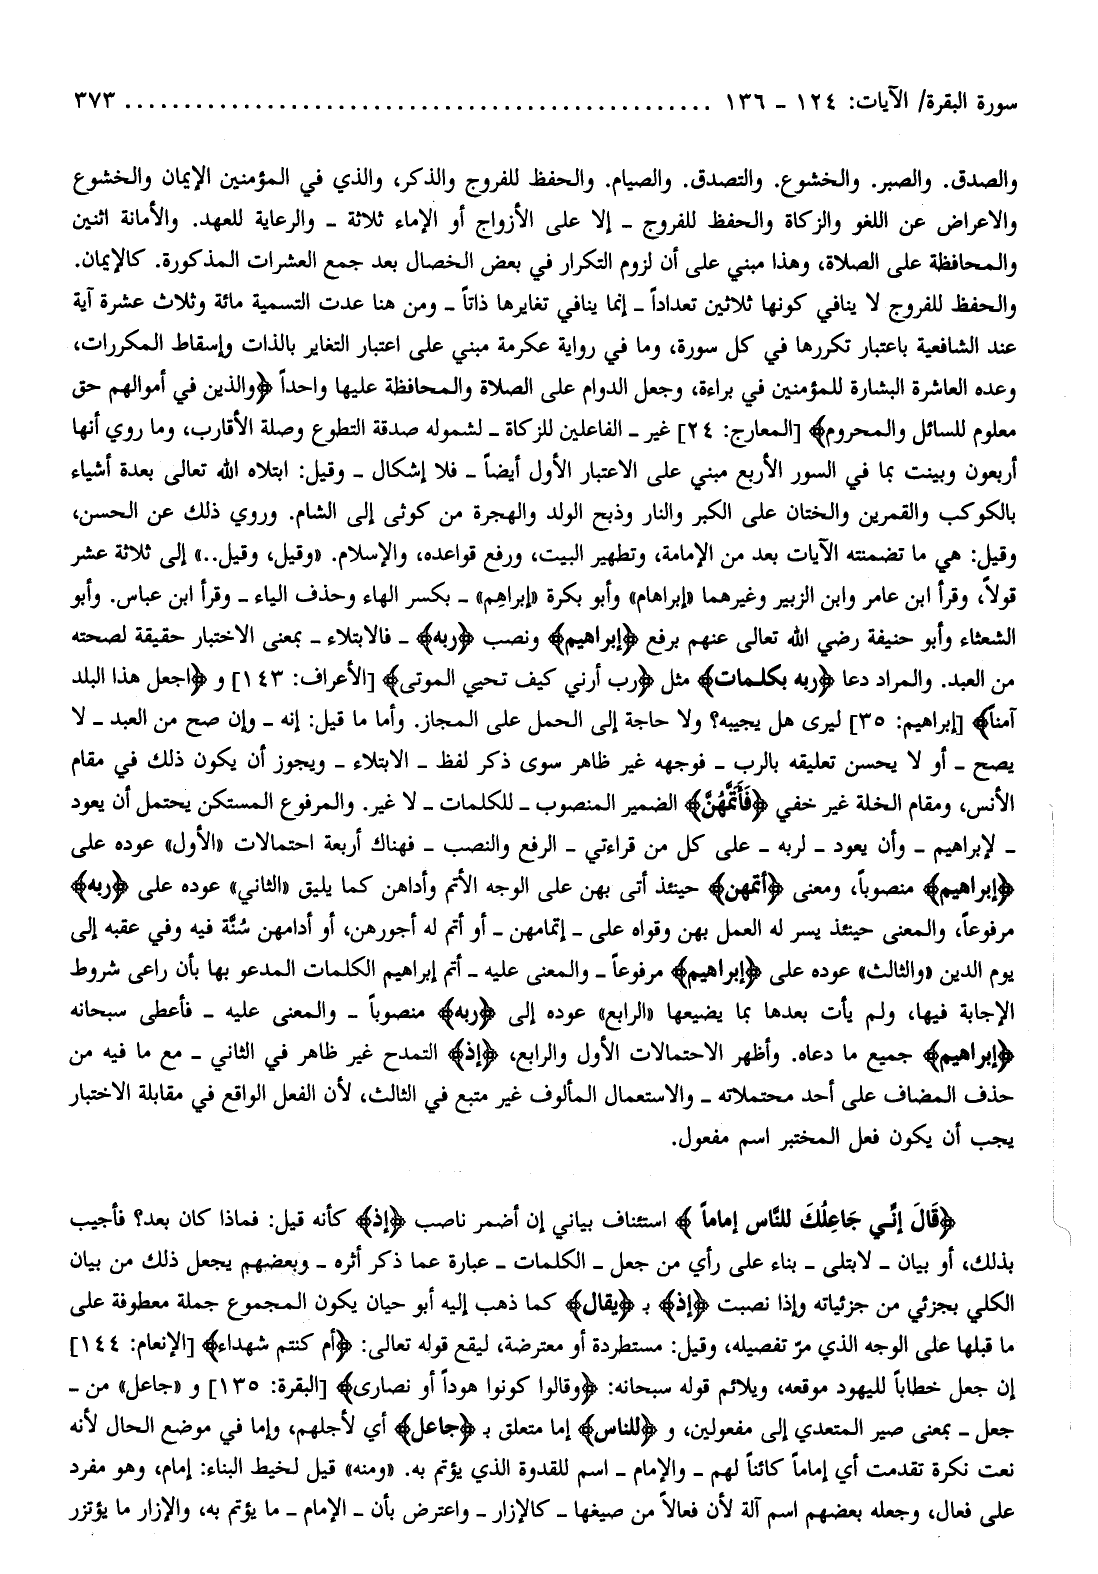 سورة البقرة/ الآيات: ١٢٤ ـ ١٣٦ ................................................ ٣٧٣
والصدق. والصبر. والخشوع. والتصدق. والصيام. والحفظ للفروج والذكر، والذي في المؤمنين الإيمان والخشوع
والاعراض عن اللغو والزكاة والحفظ للفروج ـ إلا على الأزواج أو الإماء ثلاثة ـ والرعاية للعهد. والأمانة اثنين
والمحافظة على الصلاة، وهذا مبني على أن لزوم التكرار في بعض الخصال بعد جمع العشرات المذكورة. كالإيمان.
والحفظ للفروج لا ينافي كونها ثلاثين تعداداً ـ إنما ينافي تغايرها ذاتاً ـ ومن هنا عدت التسمية مائة وثلاث عشرة آية
عند الشافعية باعتبار تكررها في كل سورة، وما في رواية عكرمة مبني على اعتبار التغاير بالذات وإسقاط المكررات،
وعده العاشرة البشارة للمؤمنين في براءة، وجعل الدوام على الصلاة والمحافظة عليها واحداً ﴿والذين في أموالهم حق
معلوم للسائل والمحروم﴾ [المعارج: ٢٤] غير ـ الفاعلين للزكاة ـ لشموله صدقة التطوع وصلة الأقارب، وما روي أنها
أربعون وبينت بما في السور الأربع مبني على الاعتبار الأول أيضاً ـ فلا إشكال ـ وقيل: ابتلاه الله تعالى بعدة أشياء
بالكوكب والقمرين والختان على الكبر والنار وذبح الولد والهجرة من كوثى إلى الشام. وروي ذلك عن الحسن،
وقيل: هي ما تضمنته الآيات بعد من الإمامة، وتطهير البيت، ورفع قواعده، والإسلام. «وقيل، وقيل..» إلى ثلاثة عشر
قولاً، وقرأ ابن عامر وابن الزبير وغيرهما «إبراهام» وأبو بكرة «إبراهِم» ـ بكسر الهاء وحذف الياء ـ وقرأ ابن عباس. وأبو
الشعثاء وأبو حنيفة رضي الله تعالى عنهم برفع ﴿إبراهيم﴾ ونصب ﴿ربه﴾ ـ فالابتلاء ـ بمعنى الاختبار حقيقة لصحته
من العبد. والمراد دعا ﴿ربه بكلمات﴾ مثل ﴿رب أرني كيف تحيي الموتى﴾ [الأعراف: ١٤٣] و ﴿اجعل هذا البلد
آمناً﴾ [إبراهيم: ٣٥] ليرى هل يجيبه؟ ولا حاجة إلى الحمل على المجاز. وأما ما قيل: إنه ـ وإن صح من العبد ـ لا
يصح ـ أو لا يحسن تعليقه بالرب ـ فوجهه غير ظاهر سوى ذكر لفظ ـ الابتلاء ـ ويجوز أن يكون ذلك في مقام
الأنس، ومقام الخلة غير خفي ﴿فَأَتَمَّهُنَّ﴾ الضمير المنصوب ـ للكلمات ـ لا غير. والمرفوع المستكن يحتمل أن يعود
ـ لإبراهيم ـ وأن يعود ـ لربه ـ على كل من قراءتي ـ الرفع والنصب ـ فهناك أربعة احتمالات «الأول» عوده على
﴿إبراهيم﴾ منصوباً، ومعنى ﴿أتمهن﴾ حينئذ أتى بهن على الوجه الأتم وأداهن كما يليق «الثاني» عوده على ﴿ربه﴾
مرفوعاً، والمعنى حينئذ يسر له العمل بهن وقواه على ـ إتمامهن ـ أو أتم له أجورهن، أو أدامهن سُنَّة فيه وفي عقبه إلى
يوم الدين «والثالث» عوده على ﴿إبراهيم﴾ مرفوعاً ـ والمعنى عليه ـ أتم إبراهيم الكلمات المدعو بها بأن راعى شروط
الإجابة فيها، ولم يأت بعدها بما يضيعها «الرابع» عوده إلى ﴿ربه﴾ منصوباً ـ والمعنى عليه ـ فأعطى سبحانه
﴿إبراهيم﴾ جميع ما دعاه. وأظهر الاحتمالات الأول والرابع، ﴿إذ﴾ التمدح غير ظاهر في الثاني ـ مع ما فيه من
حذف المضاف على أحد محتملاته ـ والاستعمال المألوف غير متبع في الثالث، لأن الفعل الواقع في مقابلة الاختبار
يجب أن يكون فعل المختبر اسم مفعول.
﴿قَالَ إِنَّي جَاعِلُكَ للنَّاس إماماً ﴾ استئناف بياني إن أضمر ناصب ﴿إذ﴾ كأنه قيل: فماذا كان بعد؟ فأجيب
بذلك، أو بيان ـ لابتلى ـ بناء على رأي من جعل ـ الكلمات ـ عبارة عما ذكر أثره ـ وبعضهم يجعل ذلك من بيان
الكلي بجزئي من جزئياته وإذا نصبت ﴿إذ﴾ بـ ﴿يقال﴾ كما ذهب إليه أبو حيان يكون المجموع جملة معطوفة على
ما قبلها على الوجه الذي مرّ تفصيله، وقيل: مستطردة أو معترضة، ليقع قوله تعالى: ﴿أم كنتم شهداء﴾ [الإنعام: ١٤٤]
إن جعل خطاباً لليهود موقعه، ويلائم قوله سبحانه: ﴿وقالوا كونوا هوداً أو نصارى﴾ [البقرة: ١٣٥] و «جاعل» من ـ
جعل ـ بمعنى صير المتعدي إلى مفعولين، و ﴿للناس﴾ إما متعلق بـ ﴿جاعل﴾ أي لأجلهم، وإما في موضع الحال لأنه
نعت نكرة تقدمت أي إماماً كائناً لهم ـ والإمام ـ اسم للقدوة الذي يؤتم به. «ومنه» قيل لخيط البناء: إمام، وهو مفرد
على فعال، وجعله بعضهم اسم آلة لأن فعالاً من صيغها ـ كالإزار ـ واعترض بأن ـ الإمام ـ ما يؤتم به، والإزار ما يؤتزر